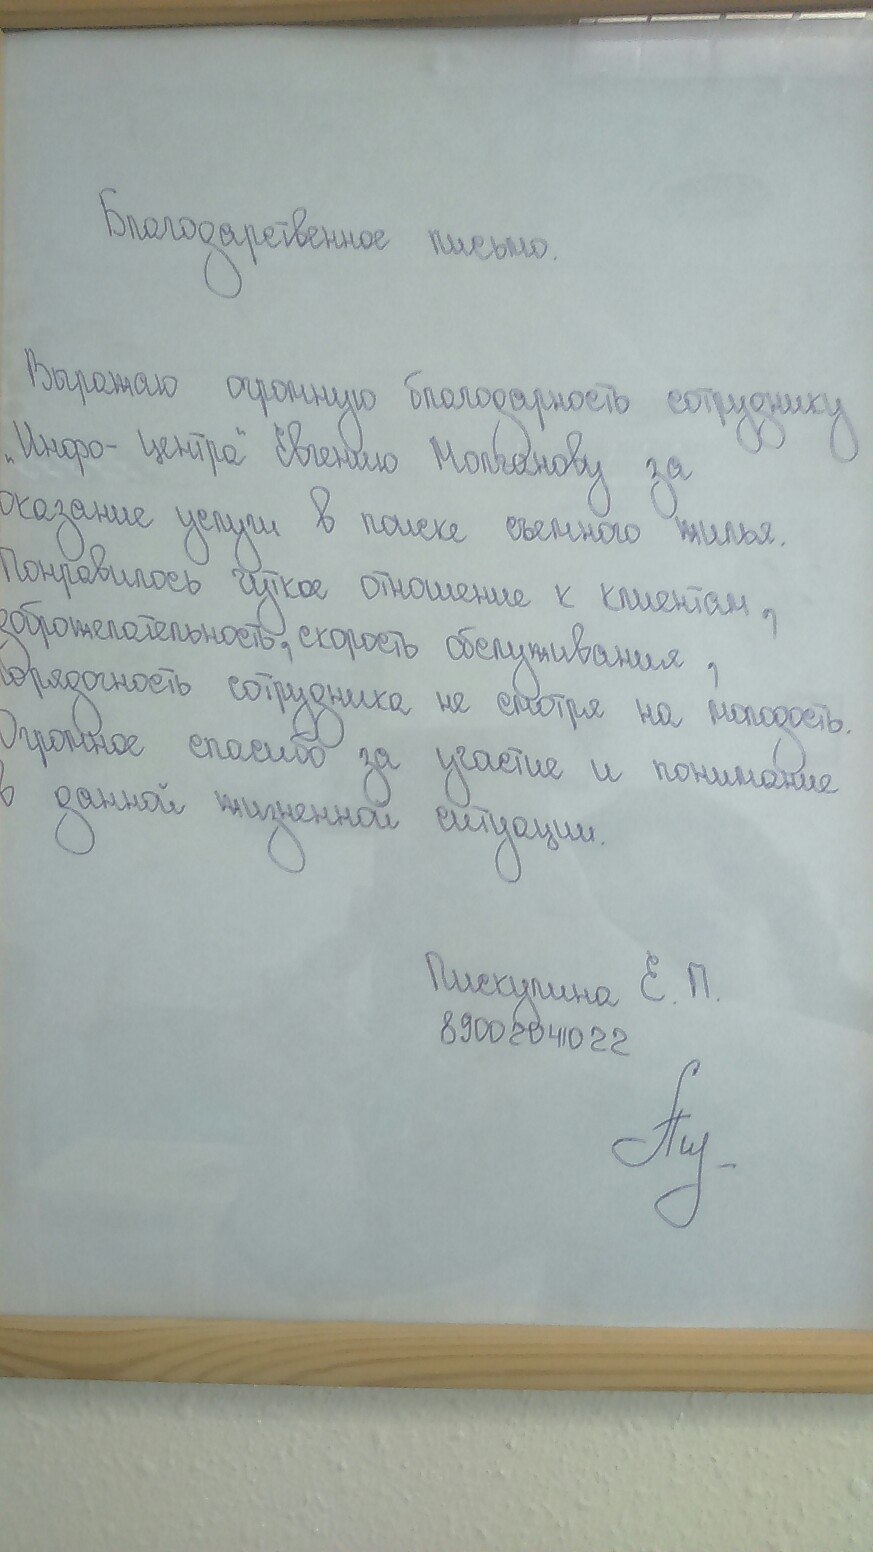 Благодарственное письмо.
Выражаю огромную благодарность сотруднику
„Инфо-Центра" Евгению Молчанову за
оказание услуги в поиске съемного жилья.
Понравилось чуткое отношение к клиентам,
доброжелательность, скорость обслуживания,
порядочность сотрудника не смотря на молодость.
Огромное спасибо за участие и понимание
в данной жизненной ситуации.
Пискулина Е. П.
89002041022